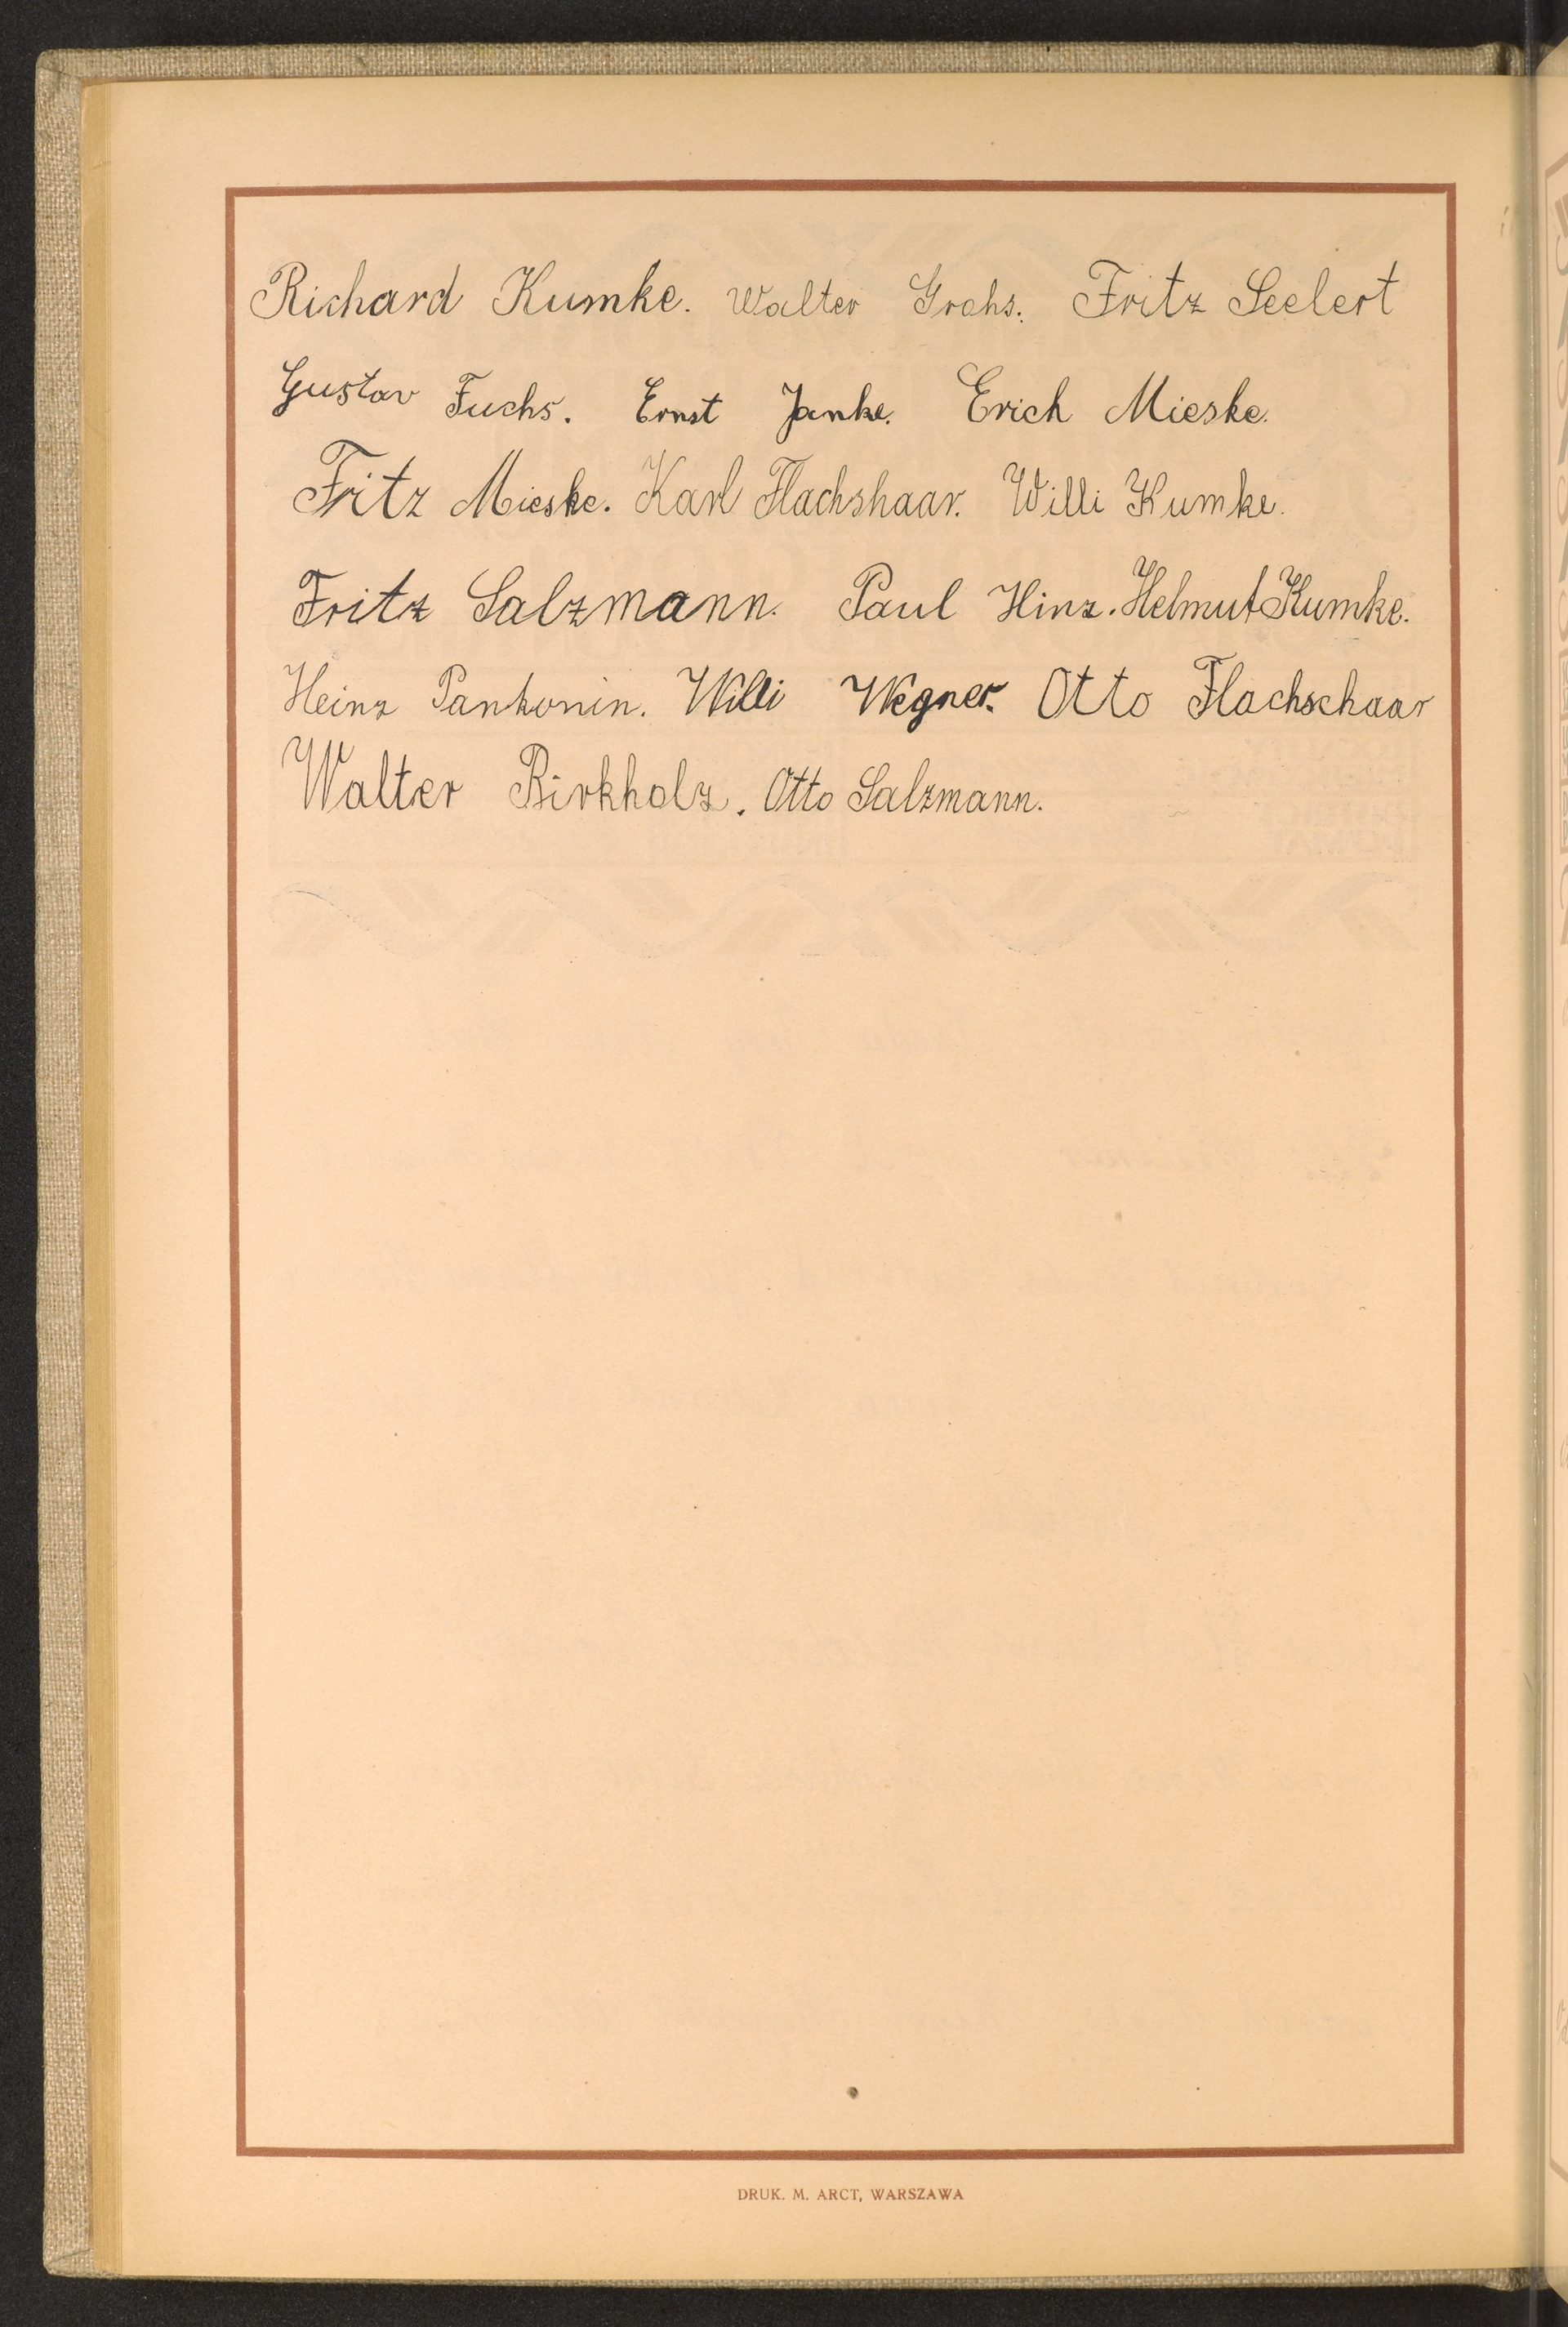 Richard Kumke. Walter Grahs. Fritz Seelert
Gustav Fuchs. Ernst Janke. Erich Mieske.
Fritz Mieske. Karl Flachshaar. Willi Kumke.
Fritz Salzmann. Paul Hinz. Helmut Kumke.
Heinz Pankonin. Willi Wegner. Otto Flachschaar
Walter Birkholz. Otto Salzmann.
DRUK. M. ARCT, WARSZAWA